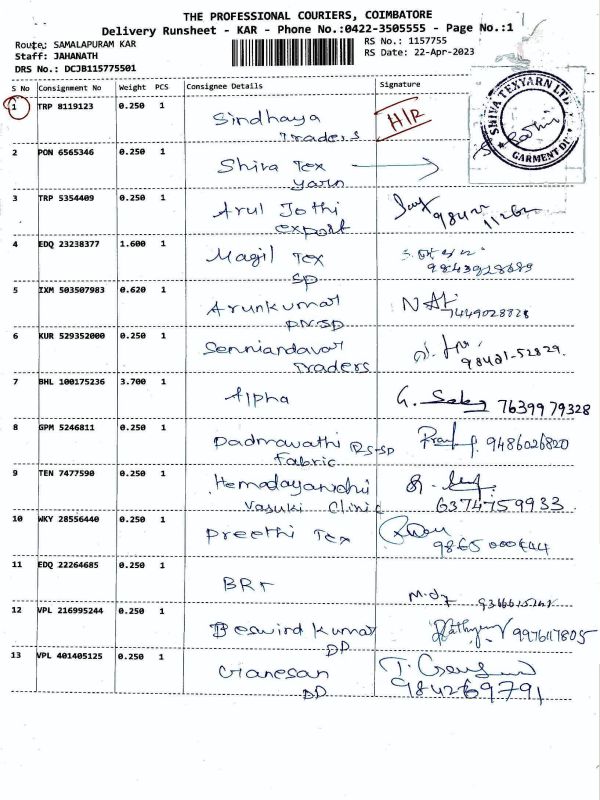 THE PROFESSIONAL COURIERS, COIMBATORE
Delivery Runsheet - KAR - Phone No.:0422-3505555 - Page No.:1
Route: SAMALAPURAM KAR
RS No.: 1157755
Staff: JAHANATH
RS Date: 22-Apr-2023
DRS No.: DCJB115775501
S No Consignment No Weight PCS Consignee Details Signature
1 TRP 8119123 0.250 1 Sindhaya H/R
Traders
SHIVA TEXYARN LTD
GARMENT DI
2 PON 6565346 0.250 1 Shiva Tex
yarn
3 TRP 5354409 0.250 1 Arul Jothi
export
4 EDQ 23238377 1.600 1 Magil Tex
SP
5 IXM 503507983 0.620 1 Arunkumar
PN-SP
7449028828
6 KUR 529352000 0.250 1 Senniandavar
Traders
98421-52829
7 BHL 100175236 3.700 1 Alpha
76399 79328
8 GPM 5246811 0.250 1 Padmavathi RS-SP 9486026820
Fabric
9 TEN 7477590 0.250 1 Hemadayanidhi
Vasuki Clinic 6374759933
10 WKY 28556440 0.250 1 Preethi Tex
11 EDQ 22264685 0.250 1 BRT
12 VPL 216995244 0.250 1 Kumar 9976117805
DD
13 VPL 401405125 0.250 1 Ganesan
DD 9842769791